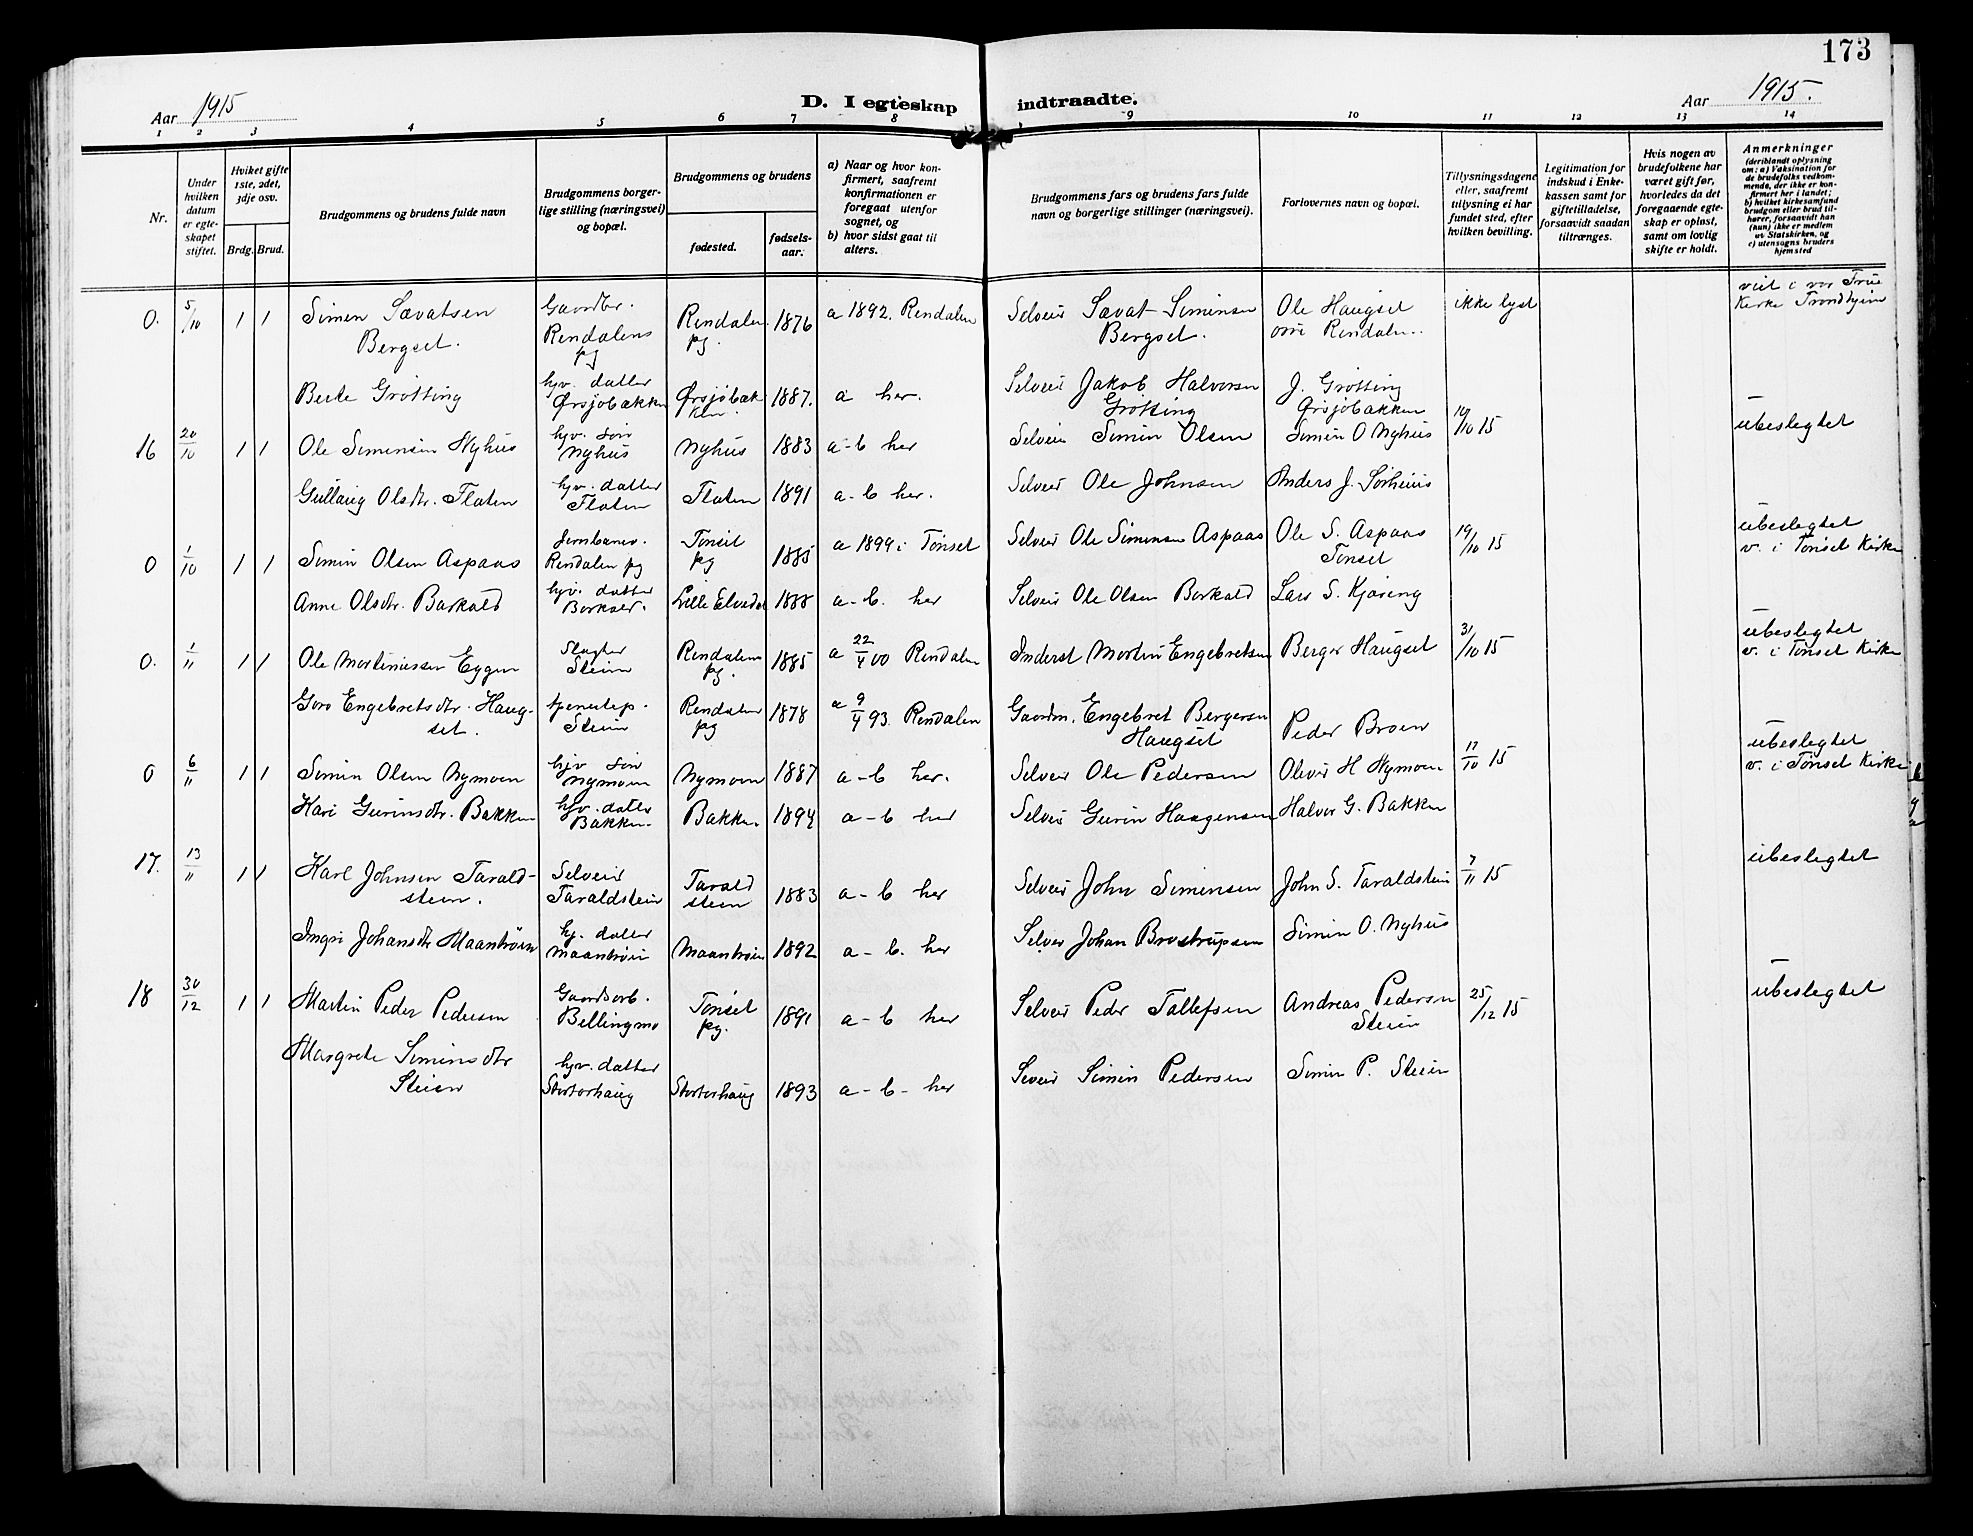 173
Aar 1915
D. I egteskap indtraadte.
Aar 1915.
1 2 3 4 5 6 7 8 9 10 11 12 13 14
Nr.
Under hvilken datum er egteskapet stiftet.
Hviket gifte 1ste, 2det, 3dje osv.
Brdg. Brud.
Brudgommens og brudens fulde navn
Brudgommens borgerlige stilling (næringsvei) og bopæl.
Brudgommens og brudens
fødested.
fødselsaar.
a) Naar og hvor konfirmert, saafremt konfirmationen er foregaat utenfor sognet, og
b) hvor sidst gaat til alters.
Brudgommens fars og brudens fars fulde navn og borgerlige stillinger (næringsvei).
Forlovernes navn og bopæl.
Tillysningsdagene eller, saafremt tillysning ei har fundet sted, efter hvilken bevilling.
Legitimation for indskud i Enkekassen samt for giftetilladelse, forsaavidt saadan tiltrænges.
Hvis nogen av brudefolkene har været gift før, hvorledes da det foregaaende egteskap er opløst, samt om lovlig skifte er holdt.
Anmerkninger
(deriblandt oplysning om: a) Vaksination for de brudefolks vedkommende, der ikke er konfirmert her i landet; b) hvilket kirkesamfund brudgom eller brud tilhører, forsaavidt han (hun) ikke er medlem av Statskirken, og c) utensogns bruders hjemsted
0. 5/10 1 1 Simen Sævatsen Bergset. Gaardbr. Rendalens pg Rendalen pg. 1876 a 1892. Rendalen Selveier Sævat Simensen Bergset. Ole Haugset øvre Rendalen. ikke lyst viet i vor Frue Kirke Trondhjem
Berte Grøtting hjv. datter Ørsjøbækken Ørsjøbækken. 1887. a her. Selveier Jakob Halvorsen Grøtting J. Grøtting Ørsjøbækken
16 20/10 1 1 Ole Simensen Nyhus hjv. søn Nyhus Nyhus 1883 a-b her Selveier Simen Olsen Simen O Nyhus 10/10 15 ubeslegtet
Gullaug Olsdtr. Floten hjv. datter Floten Floten 1891 a-b her. Selveier Ole Johnsen Anders J. Sørhuus
0 1/10 1 1 Simen Olsen Aspaas Jernbanev. Rendalen pg Tønset pg 1885 a 1899 i Tønset Selveier Ole Simensen Aspaas Ole S. Aspaas Tønset 19/10 15 ubeslegtet v. i Tønset Kirke
Anne Olsdtr. Barkald hjv. datter Barkald. Lille Elvedal 1888 a-b. her Selveier Ole Olsen Barkald Lars S. Kjøreng
0. 1/11 1 1 Ole Martinussen Eggen Slagter Steien Rendalen pg. 1885 a 22/4 00 Rendalen Inderst Martin Engebretsen Berger Haugset 31/10 15 ubeslegtet v. i Tønset Kirke
Goro Engebretsdtr. Haugset. tjenestep. Steien Rendalen pg 1878 a 9/4 93. Rendalen Gaardm. Engebret Bergersen Haugset Peder Broen
0 6/11 1 1 Simen Olsen Nymoen hjv søn Nymoen Nymoen 1887 a-b her. Selveier Ole Pedersen Oliver H Nymoen 17/10 15 ubeslegtet v. i Tønset Kirke
Kari Gurinsdtr. Bakken hjv. datter Bakken. Bakken. 1894 a-b her Selveier Gurin Haagensen Halvor G. Bakken
17. 13/11 1 1 Karl Johnsen Taraldsteen. Selveier Taraldsteen Taraldsteen 1883 a-b her Selveier John Simensen John S. Taraldsteen 7/11 15 ubeslegtet
Ingri Johansdtr Maantrøen hj. datter Maantrøen Maantrøen 1892 a-b. her Selveier Johan Brostrupsen Simen O. Nyhus
18 30/12 1 1 Martin Peder Pedersen Gaardsarb. Bellingmo Tønset pg. 1891 a-b her Selveier Peder Tollefsen Andreas Pedersen Steien 25/12 15 ubeslegtet
Margrete Simensdtr Steien hjv. datter Stortorhaug Stortorhaug 1893 a-b- her Seveier Simen Pedersen Simen P. Steien